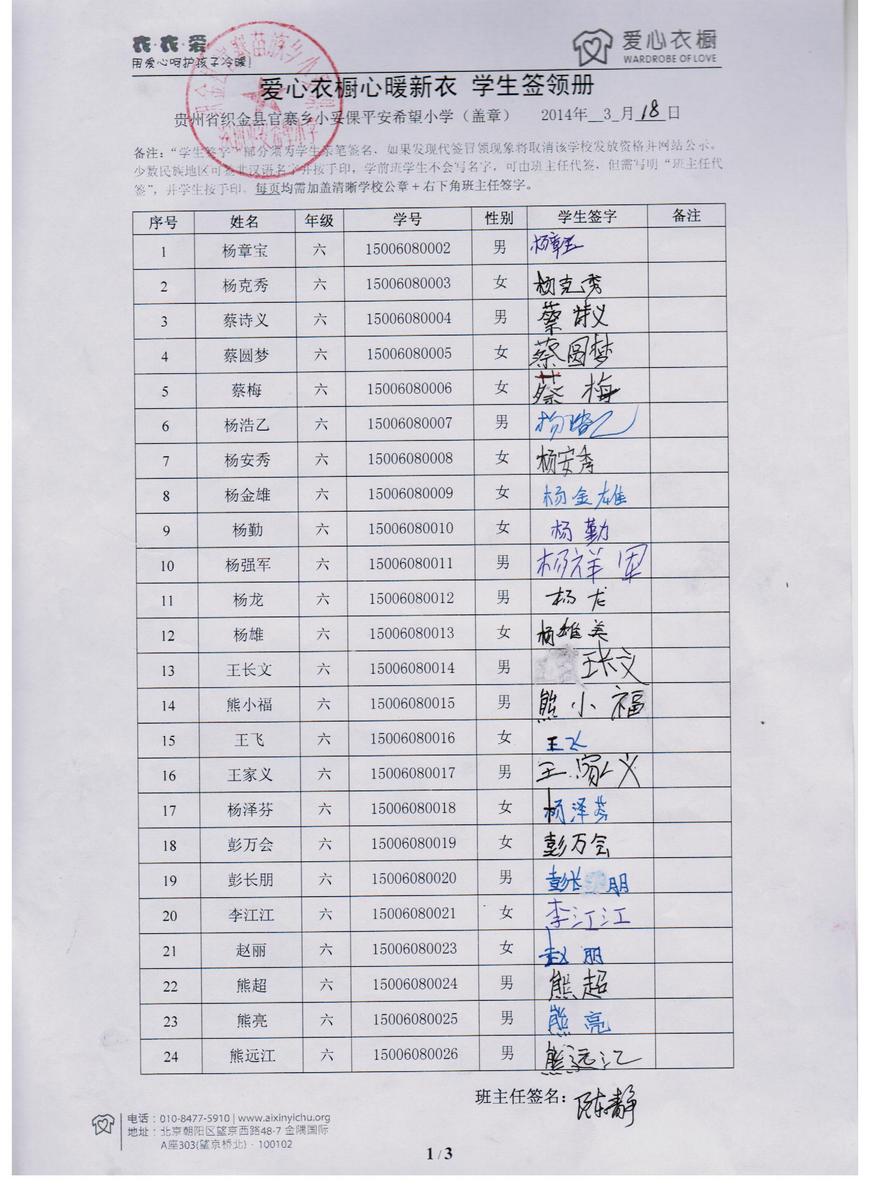 衣·衣·爱
用爱心呵护孩子冷暖!
爱心衣橱
WARDROBE OF LOVE
爱心衣橱心暖新衣 学生签领册
贵州省织金县官寨乡小妥倮平安希望小学（盖章） 2014年 3 月 18 日
备注：“学生签字”部分须为学生亲笔签名，如果发现代签冒领现象将取消该学校发放资格并网站公示。
少数民族地区可签非汉语名字并按手印，学前班学生不会写名字，可由班主任代签，但需写明“班主任代
签”，并学生按手印。每页均需加盖清晰学校公章+右下角班主任签字。
序号 姓名 年级 学号 性别 学生签字 备注
1 杨章宝 六 15006080002 男 杨章宝
2 杨克秀 六 15006080003 女 杨克秀
3 蔡诗义 六 15006080004 男 蔡诗义
4 蔡圆梦 六 15006080005 女 蔡圆梦
5 蔡梅 六 15006080006 女 蔡梅
6 杨浩乙 六 15006080007 男 杨浩乙
7 杨安秀 六 15006080008 女 杨安秀
8 杨金雄 六 15006080009 女 杨金雄
9 杨勤 六 15006080010 女 杨勤
10 杨强军 六 15006080011 男 杨祥军
11 杨龙 六 15006080012 男 杨龙
12 杨雄 六 15006080013 女 杨雄美
13 王长文 六 15006080014 男 王长文
14 熊小福 六 15006080015 男 熊小福
15 王飞 六 15006080016 女 王飞
16 王家义 六 15006080017 男 王家义
17 杨泽芬 六 15006080018 女 杨泽芬
18 彭万会 六 15006080019 女 彭万会
19 彭长朋 六 15006080020 男 彭长朋
20 李江江 六 15006080021 女 李江江
21 赵丽 六 15006080023 女 赵丽
22 熊超 六 15006080024 男 熊超
23 熊亮 六 15006080025 男 熊亮
24 熊远江 六 15006080026 男 熊远江
班主任签名：陈静
电话：010-8477-5910 | www.aixinyichu.org
地址：北京朝阳区望京西路48-7 金隅国际
A座303(望京桥北)·100102
1 / 3